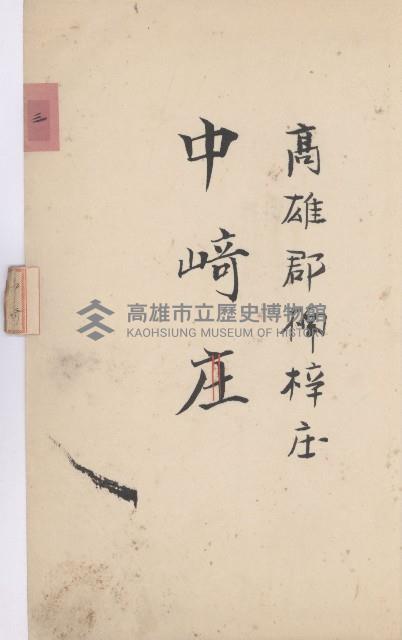 高雄郡楠梓庄
中崎庄
三
高雄市立歷史博物館
KAOHSIUNG MUSEUM OF HISTORY